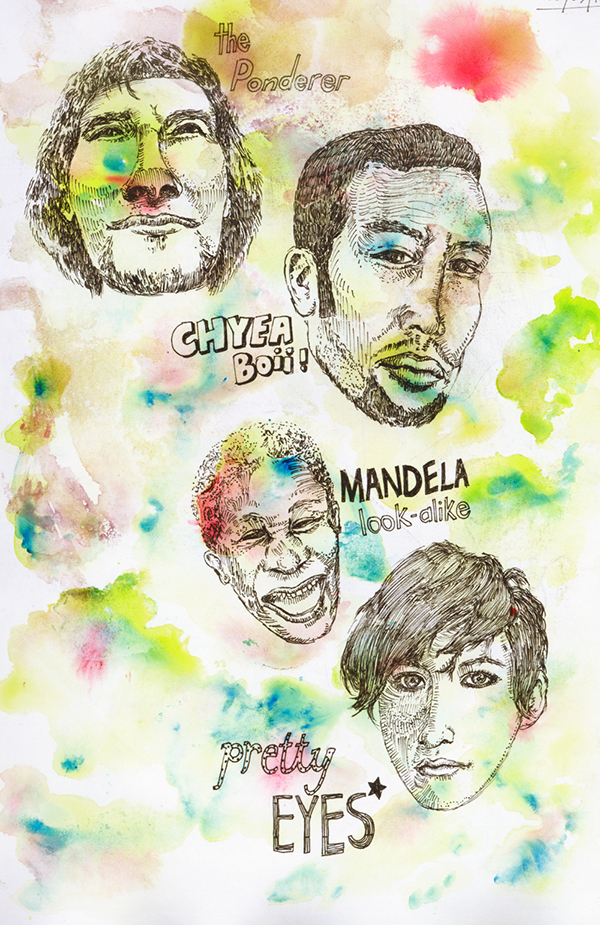 the
Ponderer
CHYEA
Boii!
MANDELA
look-alike
pretty
EYES